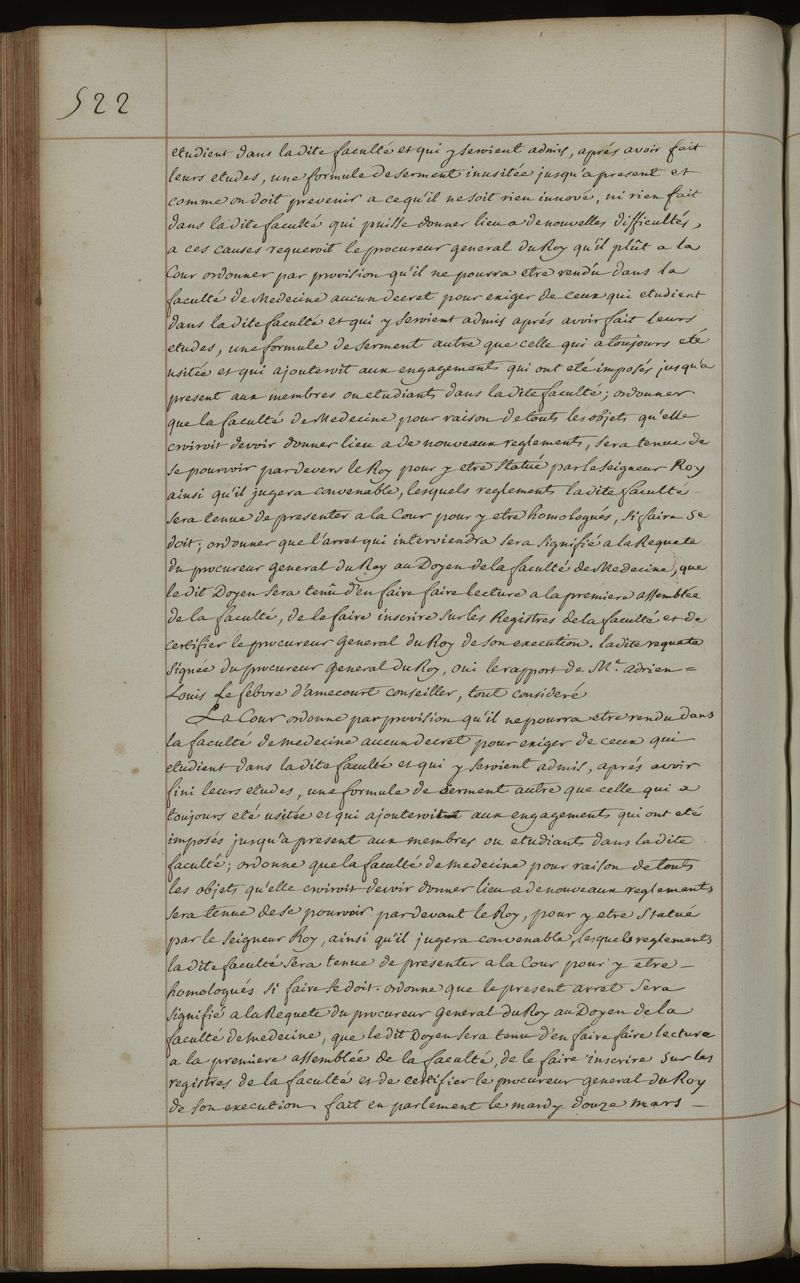 522
etudient dans la dite faculté et qui y seroient admis, aprés avoir fait
leurs etudes, une formule de serment inusitée jusqu'a present et
comme on doit prevenir a ce qu'il ne soit rien innové, ni rien fait
dans la dite faculté qui puisse donner lieu a de nouvelles difficultés,
a ces causes requeroit le procureur general du Roy qu'il plût a la
Cour ordonner par provision qu'il ne pourra etre rendu dans la
faculté de Medecine aucun decret pour exiger de ceux qui etudient
dans la dite faculté et qui y seroient admis aprés avoir fait leurs
etudes, une formule de serment autre que celle qui a toujours eté
usitée et qui ajouteroit aux engagements qui ont eté imposés jusqu'a
present aux membres ou etudiants dans la dite faculté; ordonner
que la faculté de Medecine pour raison de touts les objets qu'elle
croiroit devoir donner lieu a de nouveaux reglements, sera tenue de
se pourvoir pardevers le Roy pour y etre statué par le seigneur Roy
ainsi qu'il jugera convenable, lesquels reglements la dite faculté –
sera tenue de presenter a la Cour pour y etre homologués, si faire se
doit; ordonner que l'arret qui interviendra sera signifié a la Requete
du procureur general du Roy au Doyen de la faculté de Medecine, que
le dit Doyen sera tenû d'en faire faire lecture a la premiere assemblée
de la faculté, de le faire inscrire sur les Registres de la faculté et de
certifier le procureur General du Roy de son execution. la dite requete
signée du procureur general du Roy, oui le rapport de Mr. adrien =
Louis Le febvre d'amecourt conseiller, tout consideré
La Cour ordonne par provision qu'il ne pourra etre rendu dans
la faculté de medecine aucun decret pour exiger de ceux qui
etudient dans la dite faculté et qui y seroient admis, aprés avoir
fini leurs etudes, une formule de serment autre que celle qui a
toujours eté usitée et qui ajouteroit aux engagements qui ont eté
imposés jusqu'a present aux membres ou etudiants dans la dite
faculté; ordonne que la faculté de medecine pour raison de touts
les objets qu'elle croiroit devoir donner lieu a de nouveaux reglements
sera tenue de se pourvoir pardevant le Roy, pour y etre statué
par le seigneur Roy, ainsi qu'il jugera convenable, lesquels reglements
la dite faculté sera tenue de presenter a la Cour pour y etre –
homologués si faire se doit. ordonne que le present arret sera
signifié a la Requete du procureur general du Roy au Doyen de la
faculté de medecine, que le dit Doyen sera tenu d'en faire faire lecture
a la premiere assemblée de la faculté, de le faire inscrire sur les
registres de la faculté et de certifier le procureur general du Roy
de son execution. fait en parlement le mardy douze mars –